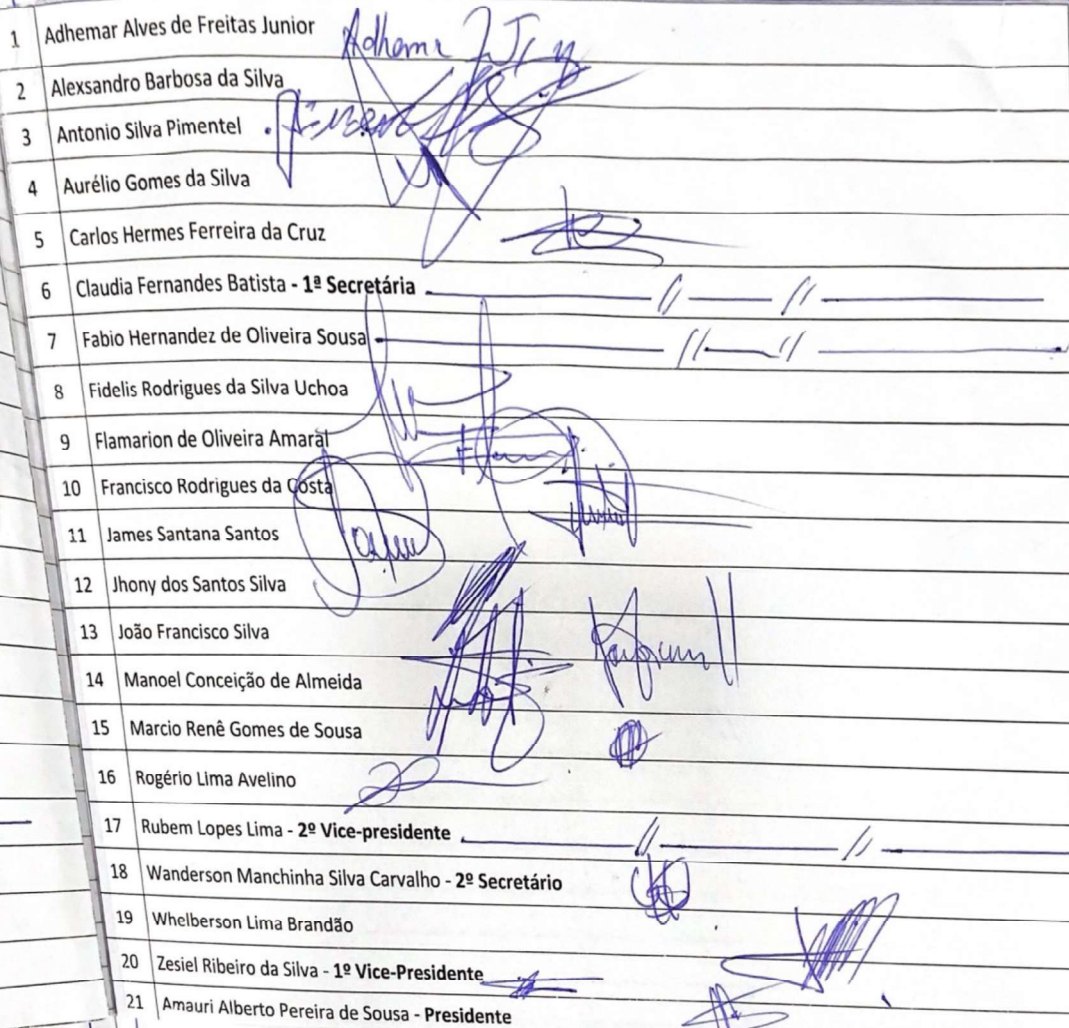 1 Adhemar Alves de Freitas Junior Adhemar
2 Alexsandro Barbosa da Silva
3 Antonio Silva Pimentel
4 Aurélio Gomes da Silva
5 Carlos Hermes Ferreira da Cruz
6 Claudia Fernandes Batista - 1ª Secretária
7 Fabio Hernandez de Oliveira Sousa
8 Fidelis Rodrigues da Silva Uchoa
9 Flamarion de Oliveira Amaral
10 Francisco Rodrigues da Costa
11 James Santana Santos
12 Jhony dos Santos Silva
13 João Francisco Silva
14 Manoel Conceição de Almeida
15 Marcio Renê Gomes de Sousa
16 Rogério Lima Avelino
17 Rubem Lopes Lima - 2º Vice-presidente
18 Wanderson Manchinha Silva Carvalho - 2º Secretário
19 Whelberson Lima Brandão
20 Zesiel Ribeiro da Silva - 1º Vice-Presidente
21 Amauri Alberto Pereira de Sousa - Presidente